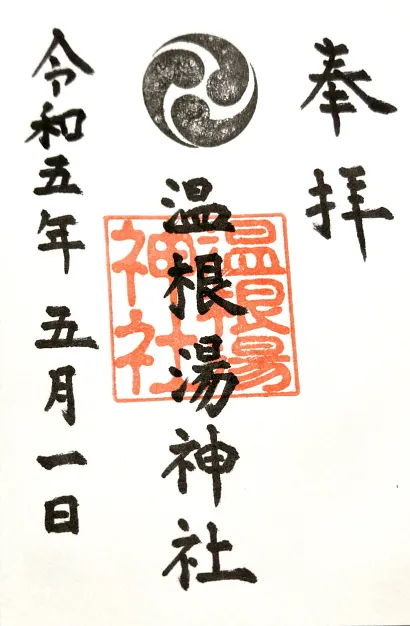 奉拝
温根湯神社
温根湯
神社
令和五年五月一日